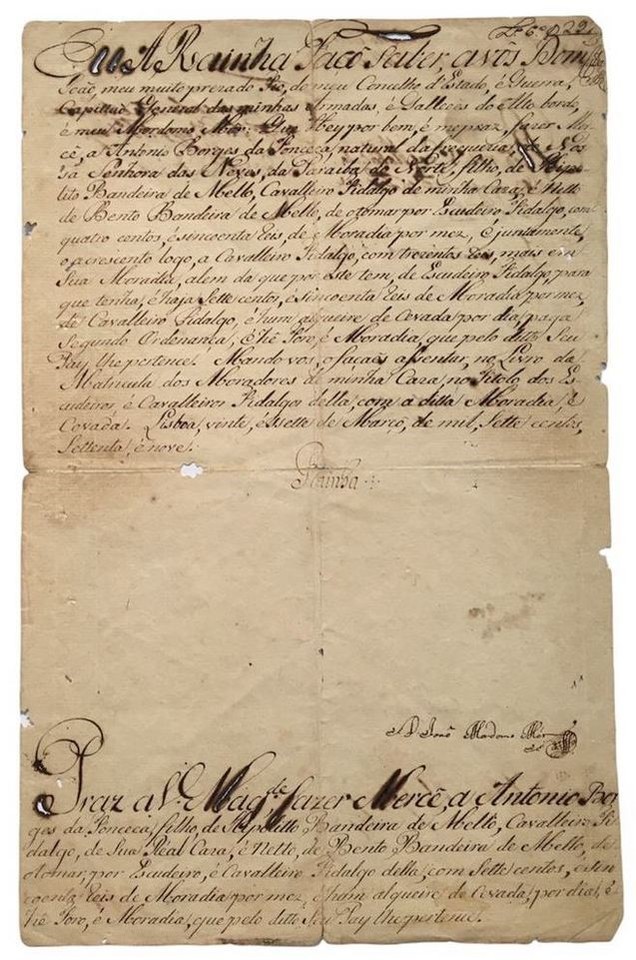 Eu A Rainha Faço Saber, a vós Dom
João, meu muito prezado Tio, do meu Concelho d'Estado, é Guerra,
Capittaõ General das minhas Armadas, é Galleões do Alto bordo,
é meu Mordomo Mór. Que Hey por bem, é me praz, fazer Mer-
cê, a Antonio Borges da Fonceca, natural da freguezia, de Nos-
sa Senhora das Neves, da Paraiba do Norte, filho, de Hipo-
lito Bandeira de Mello, Cavalleiro Fidalgo de minha Caza, é Netto
de Bento Bandeira de Mello, de o tomar por Escudeiro Fidalgo, com
quatro centos, é sincoenta Reis, de Moradia por mez, é juntamente,
o acrescento logo, a Cavalleiro Fidalgo, com trezentos Reis, mais em
Sua Moradia, alem da que por este tem, de Escudeiro Fidalgo, para
que tenha, é haja Sette centos, é sincoenta Reis de Moradia por mez
de Cavalleiro Fidalgo, é hum alqueire de Cevada por dia, paga
Segundo Ordenança, é hé Foro, é Moradia, que pelo ditto Seu
Pay lhe pertence. Mando vos, o façaes assentar, no Livro da
Matricula dos Moradores de minha Caza, no Titolo dos Es-
cudeiros, é Cavalleiros Fidalgos della, com a ditta Moradia, é
Cevada. Lisboa, vinte, é Sette de Março, de mil, Sette centos,
Settenta, é nove.
Rainha
D. João Mordomo Mór
Praz a V. Magde. fazer Mercê, a Antonio Bor-
ges da Fonceca, filho, de Hipolitto Bandeira de Mello, Cavalleiro Fi-
dalgo, de Sua Real Caza, é Netto, de Bento Bandeira de Mello, de
o tomar, por Escudeiro, é Cavalleiro Fidalgo della, com Sette centos, é sin-
coenta Reis de Moradia por mez, é hum alqueire de Cevada, por dia, é
hé Foro, é Moradia, que pelo ditto Seu Pay lhe pertence.